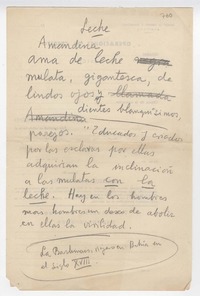 Leche
Amandina
ama de leche negra
mulata, gigantesca, de
lindos ojos y llamada
Amandina dientes blanquísimos,
parejos. "Educados y criados
por los esclavos por ellas
adquirían la inclinación
a las mulatas con la
leche. Hay en los hombres
mas hombres un deseo de abolir
en ellas la virilidad.
La Barbinais, viajero en Bahía en
el Siglo XVIII